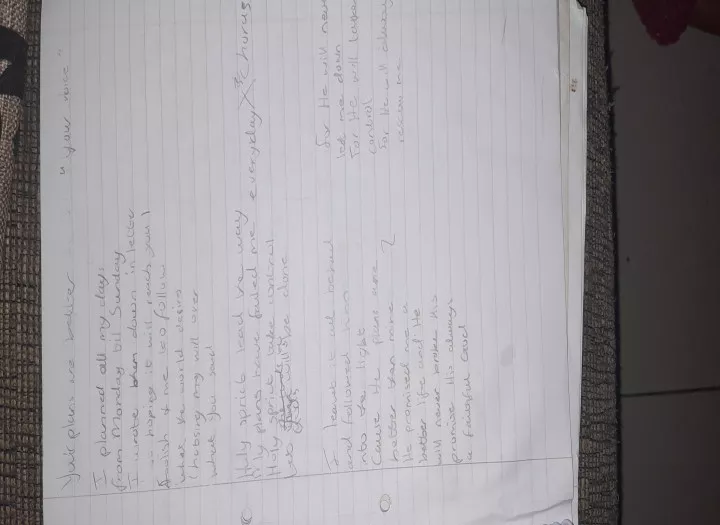 Your plans are better "your voice"
I planned all my days
from Monday till Sunday
I wrote them down in letter
hoping it will reach
foolish of me too follow
what the world desire
Choosing my will over
what you said
Holy spirit lead the way
My plans have failed me everyday Chorus
Holy spirit take control
Let will be done
I leave it all behind
and followed him
into the light
Cause He plans are
better than mine
He promised me a
better life and He
will never broke his
promise His always
a faithful God
For He will never
let me down
For He will
control
For He will always
rescue me